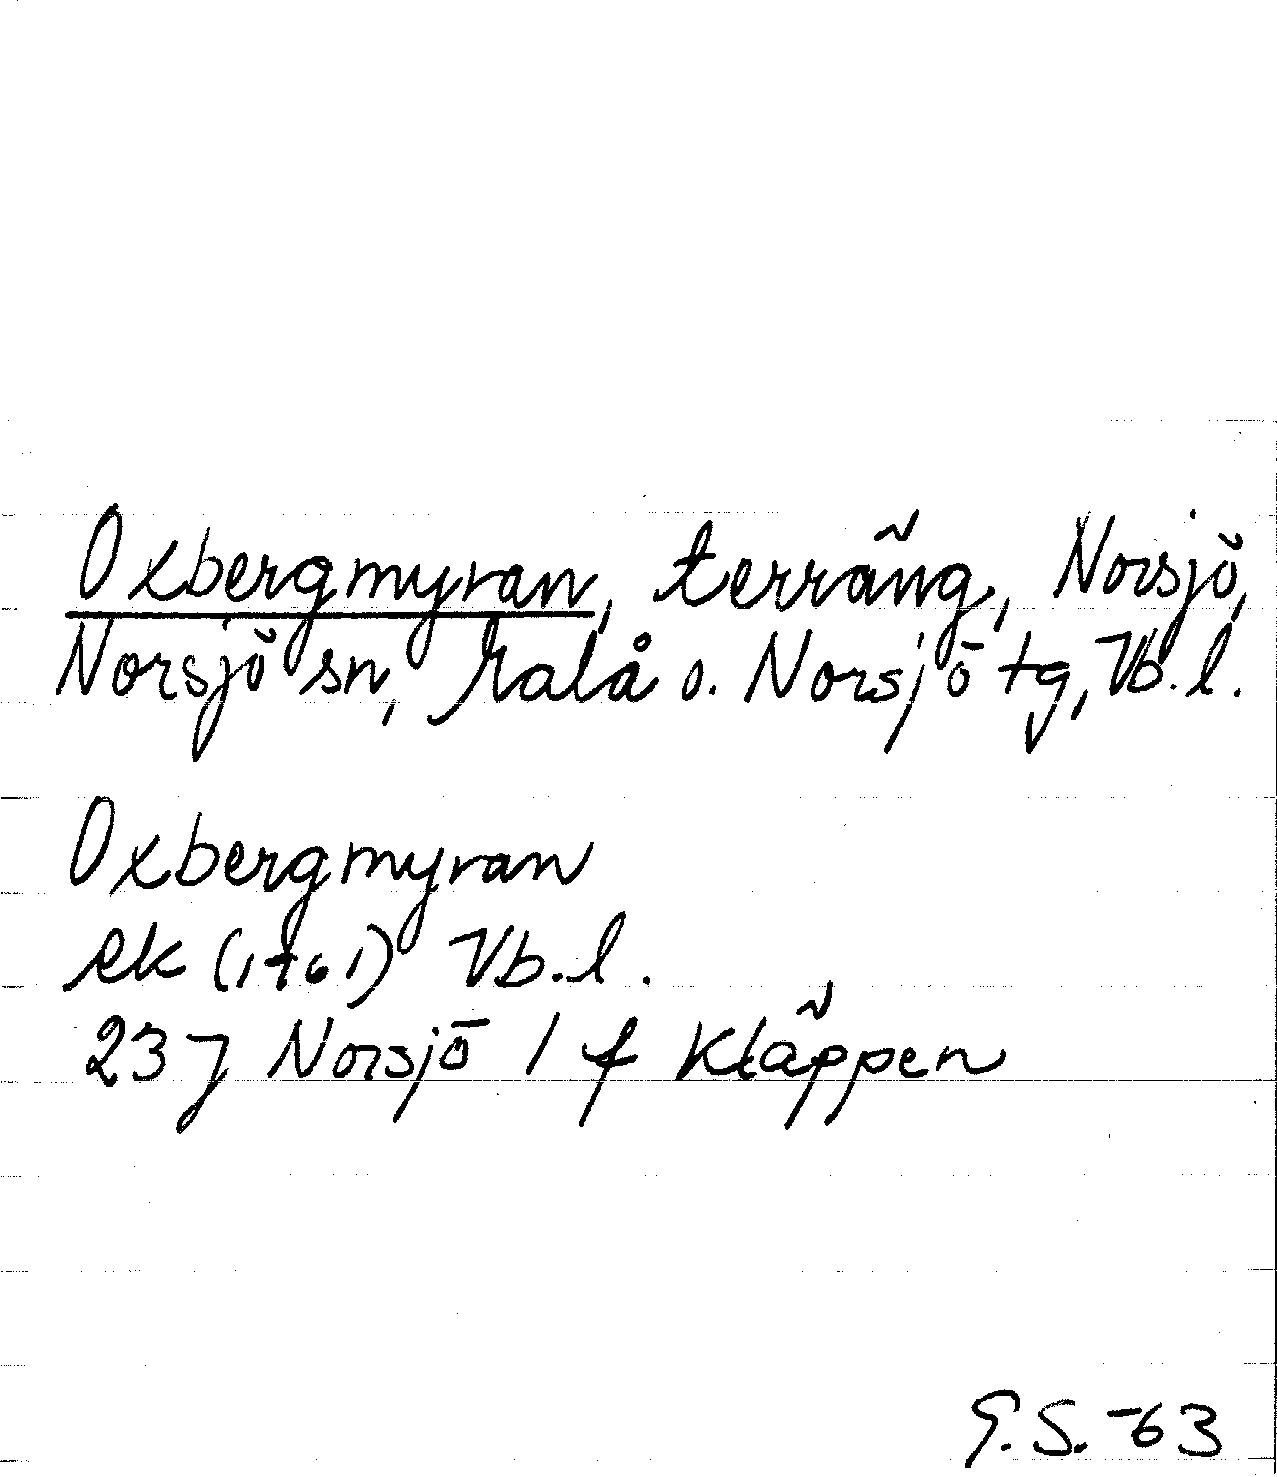 Oxbergmyran, terräng, Norsjö,
Norsjö sn, Malå o. Norsjö tg, Vb. l.
Oxbergmyran
ek (1961) Vb. l.
23 J Norsjö 1 f Kläppen
G. S. -63